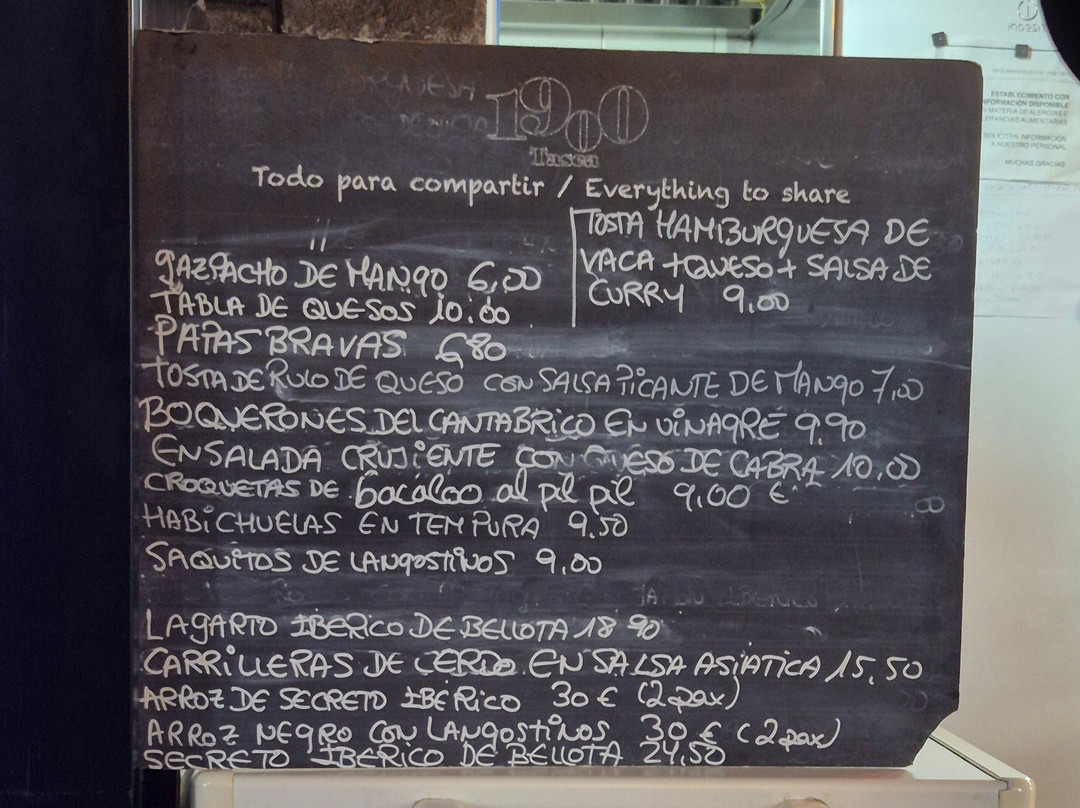 1900
Tasca
Todo para compartir / Everything to share
TOSTA HAMBURGUESA DE
VACA + QUESO + SALSA DE
CURRY 9,00
GAZPACHO DE MANGO 6,00
TABLA DE QUESOS 10,00
PAPAS BRAVAS 6,80
TOSTA DE RULO DE QUESO CON SALSA PICANTE DE MANGO 7,00
BOQUERONES DEL CANTABRICO EN VINAGRE 9,90
ENSALADA CRUJIENTE CON QUESO DE CABRA 10,00
CROQUETAS DE bacalao al pil pil 9,00 €
HABICHUELAS EN TEMPURA 9,50
SAQUITOS DE LANGOSTINOS 9,00
LAGARTO IBERICO DE BELLOTA 18 90
CARRILLERAS DE CERDO EN SALSA ASIATICA 15,50
ARROZ DE SECRETO IBERICO 30 € (2 pax)
ARROZ NEGRO CON LANGOSTINOS 30 € (2 pax)
SECRETO IBERICO DE BELLOTA 24,50
ESTABLECIMIENTO CON
INFORMACIÓN DISPONIBLE
MATERIA DE ALERGIAS E
SOLICITEN INFORMACIÓN
A NUESTRO PERSONAL
MUCHAS GRACIAS